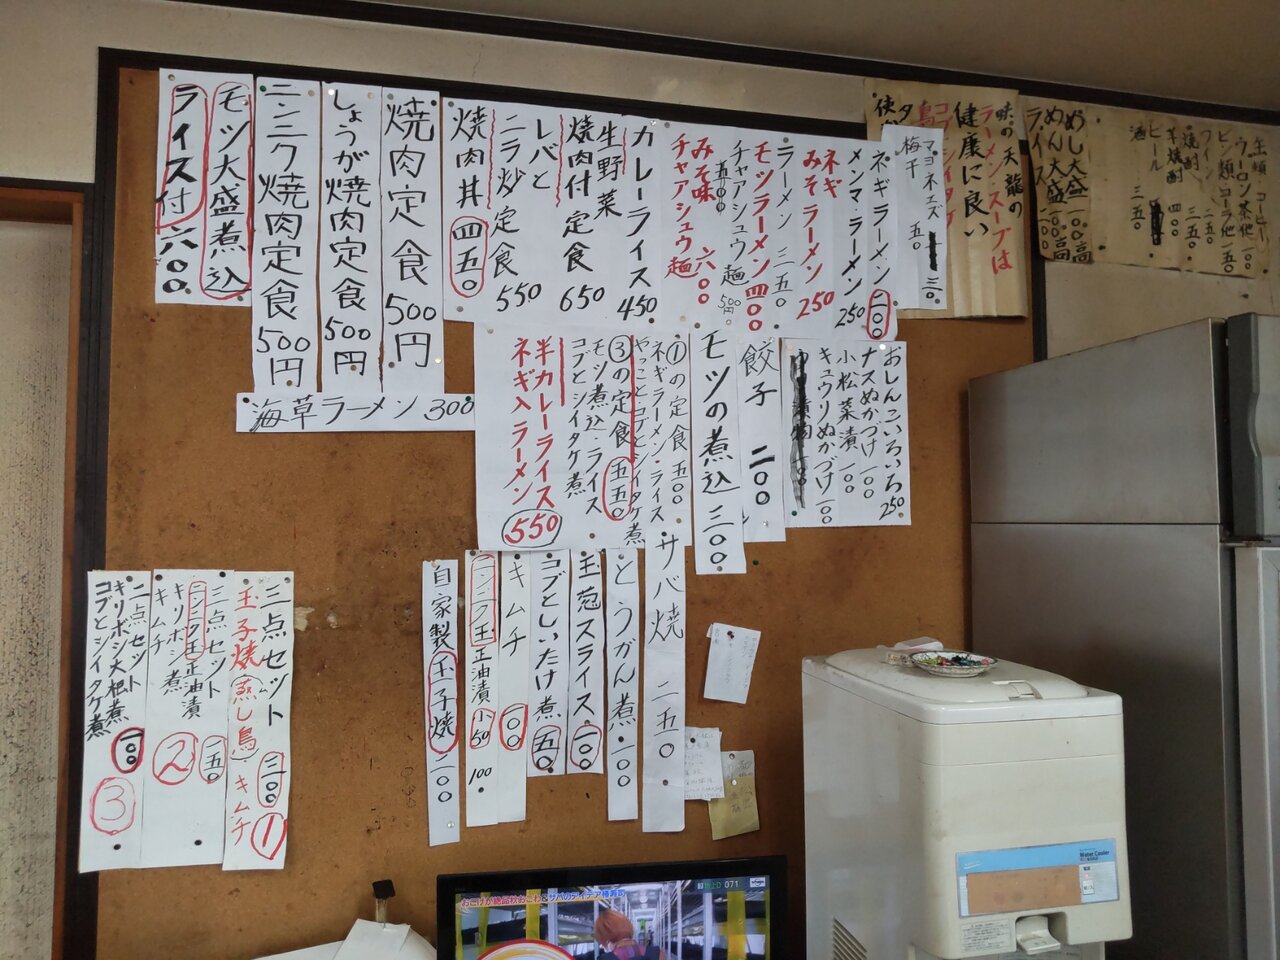 モツ大盛煮込
ライス付 六〇〇
ニンニク焼肉定食 500円
しょうが焼肉定食 500円
焼肉定食 500円
カレーライス 450
生野菜
焼肉付定食 650
レバと
ニラ炒定食 550
焼肉丼 四五〇
ネギラーメン 二〇〇
メンマラーメン 250
ネギ
みそラーメン 250
ラーメン 三五〇
モツラーメン 四〇〇
チャアシュウ麺 500円
みそ味
チャアシュウ麺 六〇〇
マヨネエズ 三〇
梅干 五〇
味の天龍の
ラーメン・スープは
健康に良い
めし大盛 一〇〇高
めん大盛 一〇〇高
ライス 二〇〇
ウーロン茶他 一〇〇
ビン類コーラ他 一五〇
ワイン 二五〇
焼酎 三五〇
羊焼酎 四〇〇
ビール
酒 三五〇
海草ラーメン 300
おしんこいろいろ 250
ナスぬかづけ 一〇〇
小松菜漬 一〇〇
キュウリぬかづけ 一〇〇
餃子 二〇〇
モツの煮込 三〇〇
①の定食 五〇〇
ネギラーメン・ライス
やっことコブとシイタケ煮
③の定食 五五〇
モツ煮込・ライス
コブとシイタケ煮
半カレーライス
ネギ入ラーメン
550
サバ焼 二五〇
とうがん煮 一〇〇
玉葱スライス 一〇〇
コブとしいたけ煮 五〇
キムチ 一〇〇
ニンニク玉正油漬 小50 100
自家製玉子焼 二〇〇
三点セット 三〇〇
玉子焼(蒸し鳥)キムチ ①
三点セット 二五〇
ニンニク玉正油漬
キリボシ煮
キムチ ②
二点セット
キリボシ大根煮 一〇〇
コブとシイタケ煮 ③
地上D 071
Water Cooler